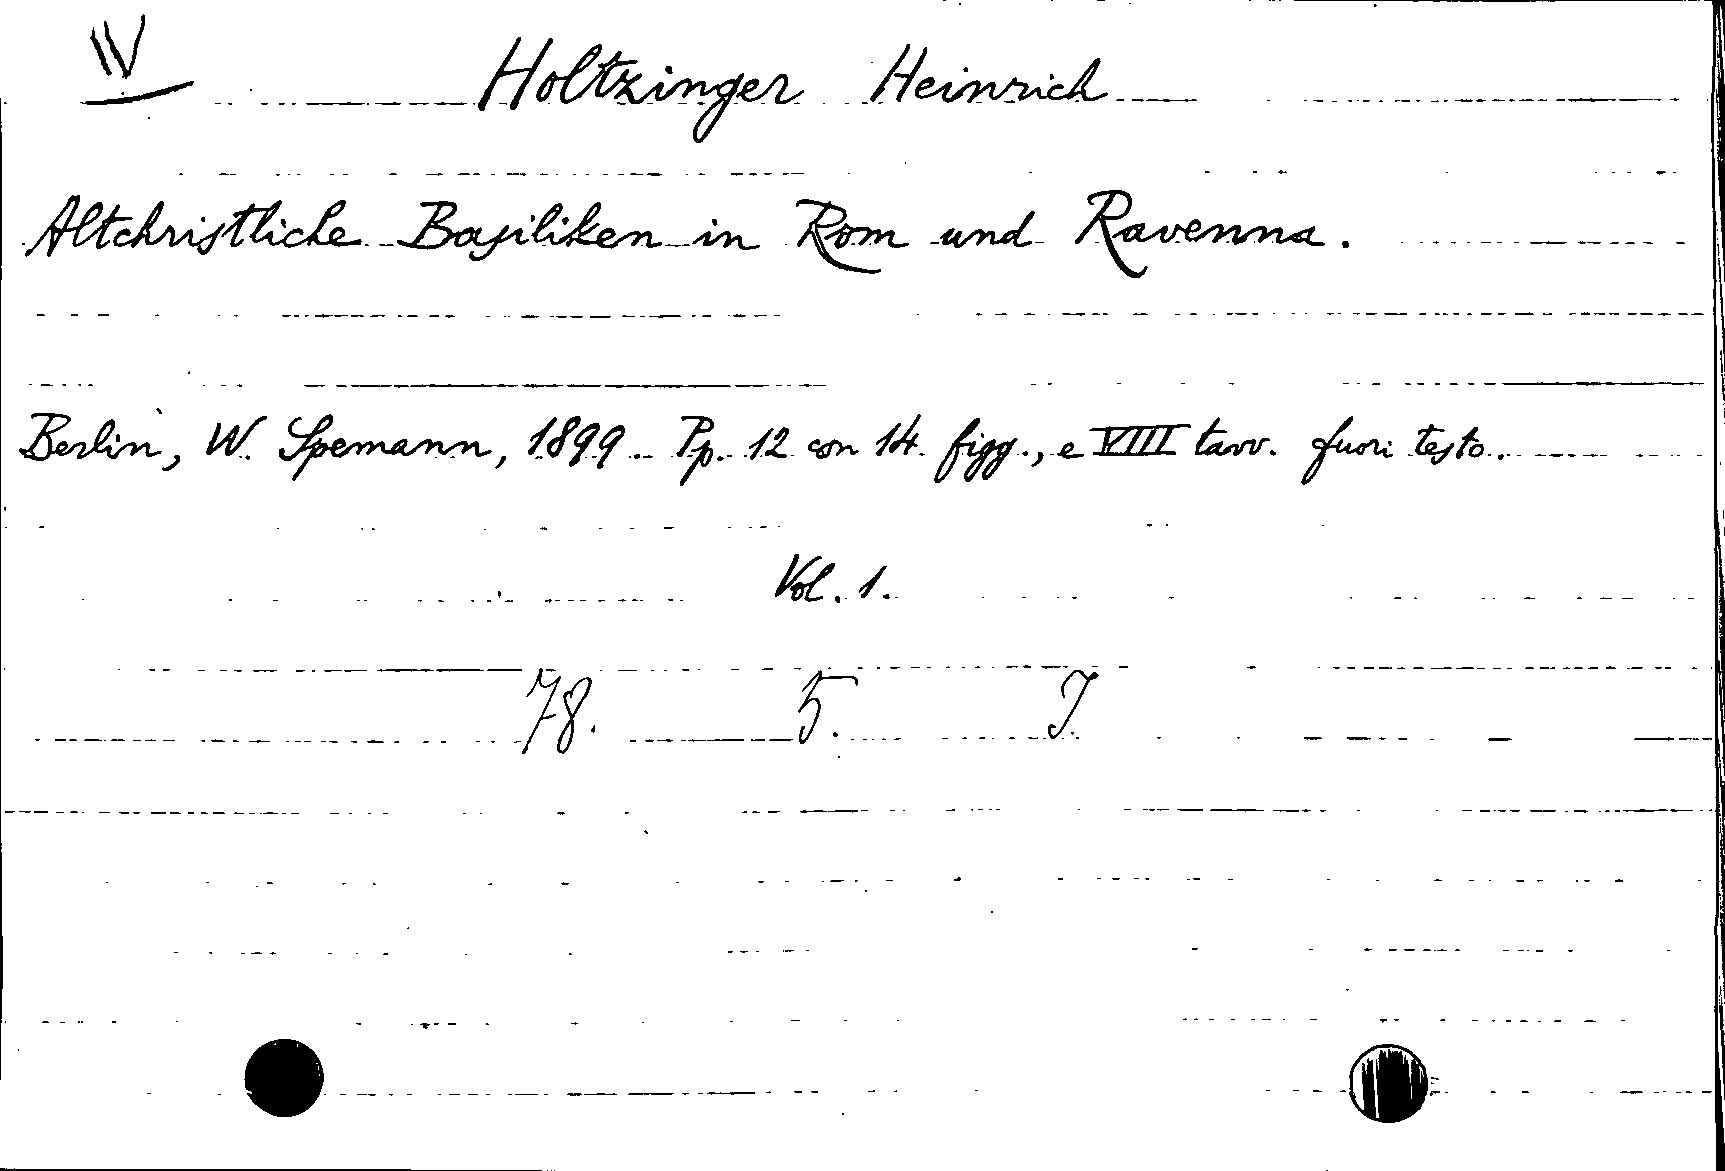 IV
Holtzinger Heinrich
Altchristliche Basiliken in Rom und Ravenna.
Berlin, W. Spemann, 1899. Pp. 12 con 14 figg., e VIII tavv. fuori testo.
Vol. 1.
78. 5. I.